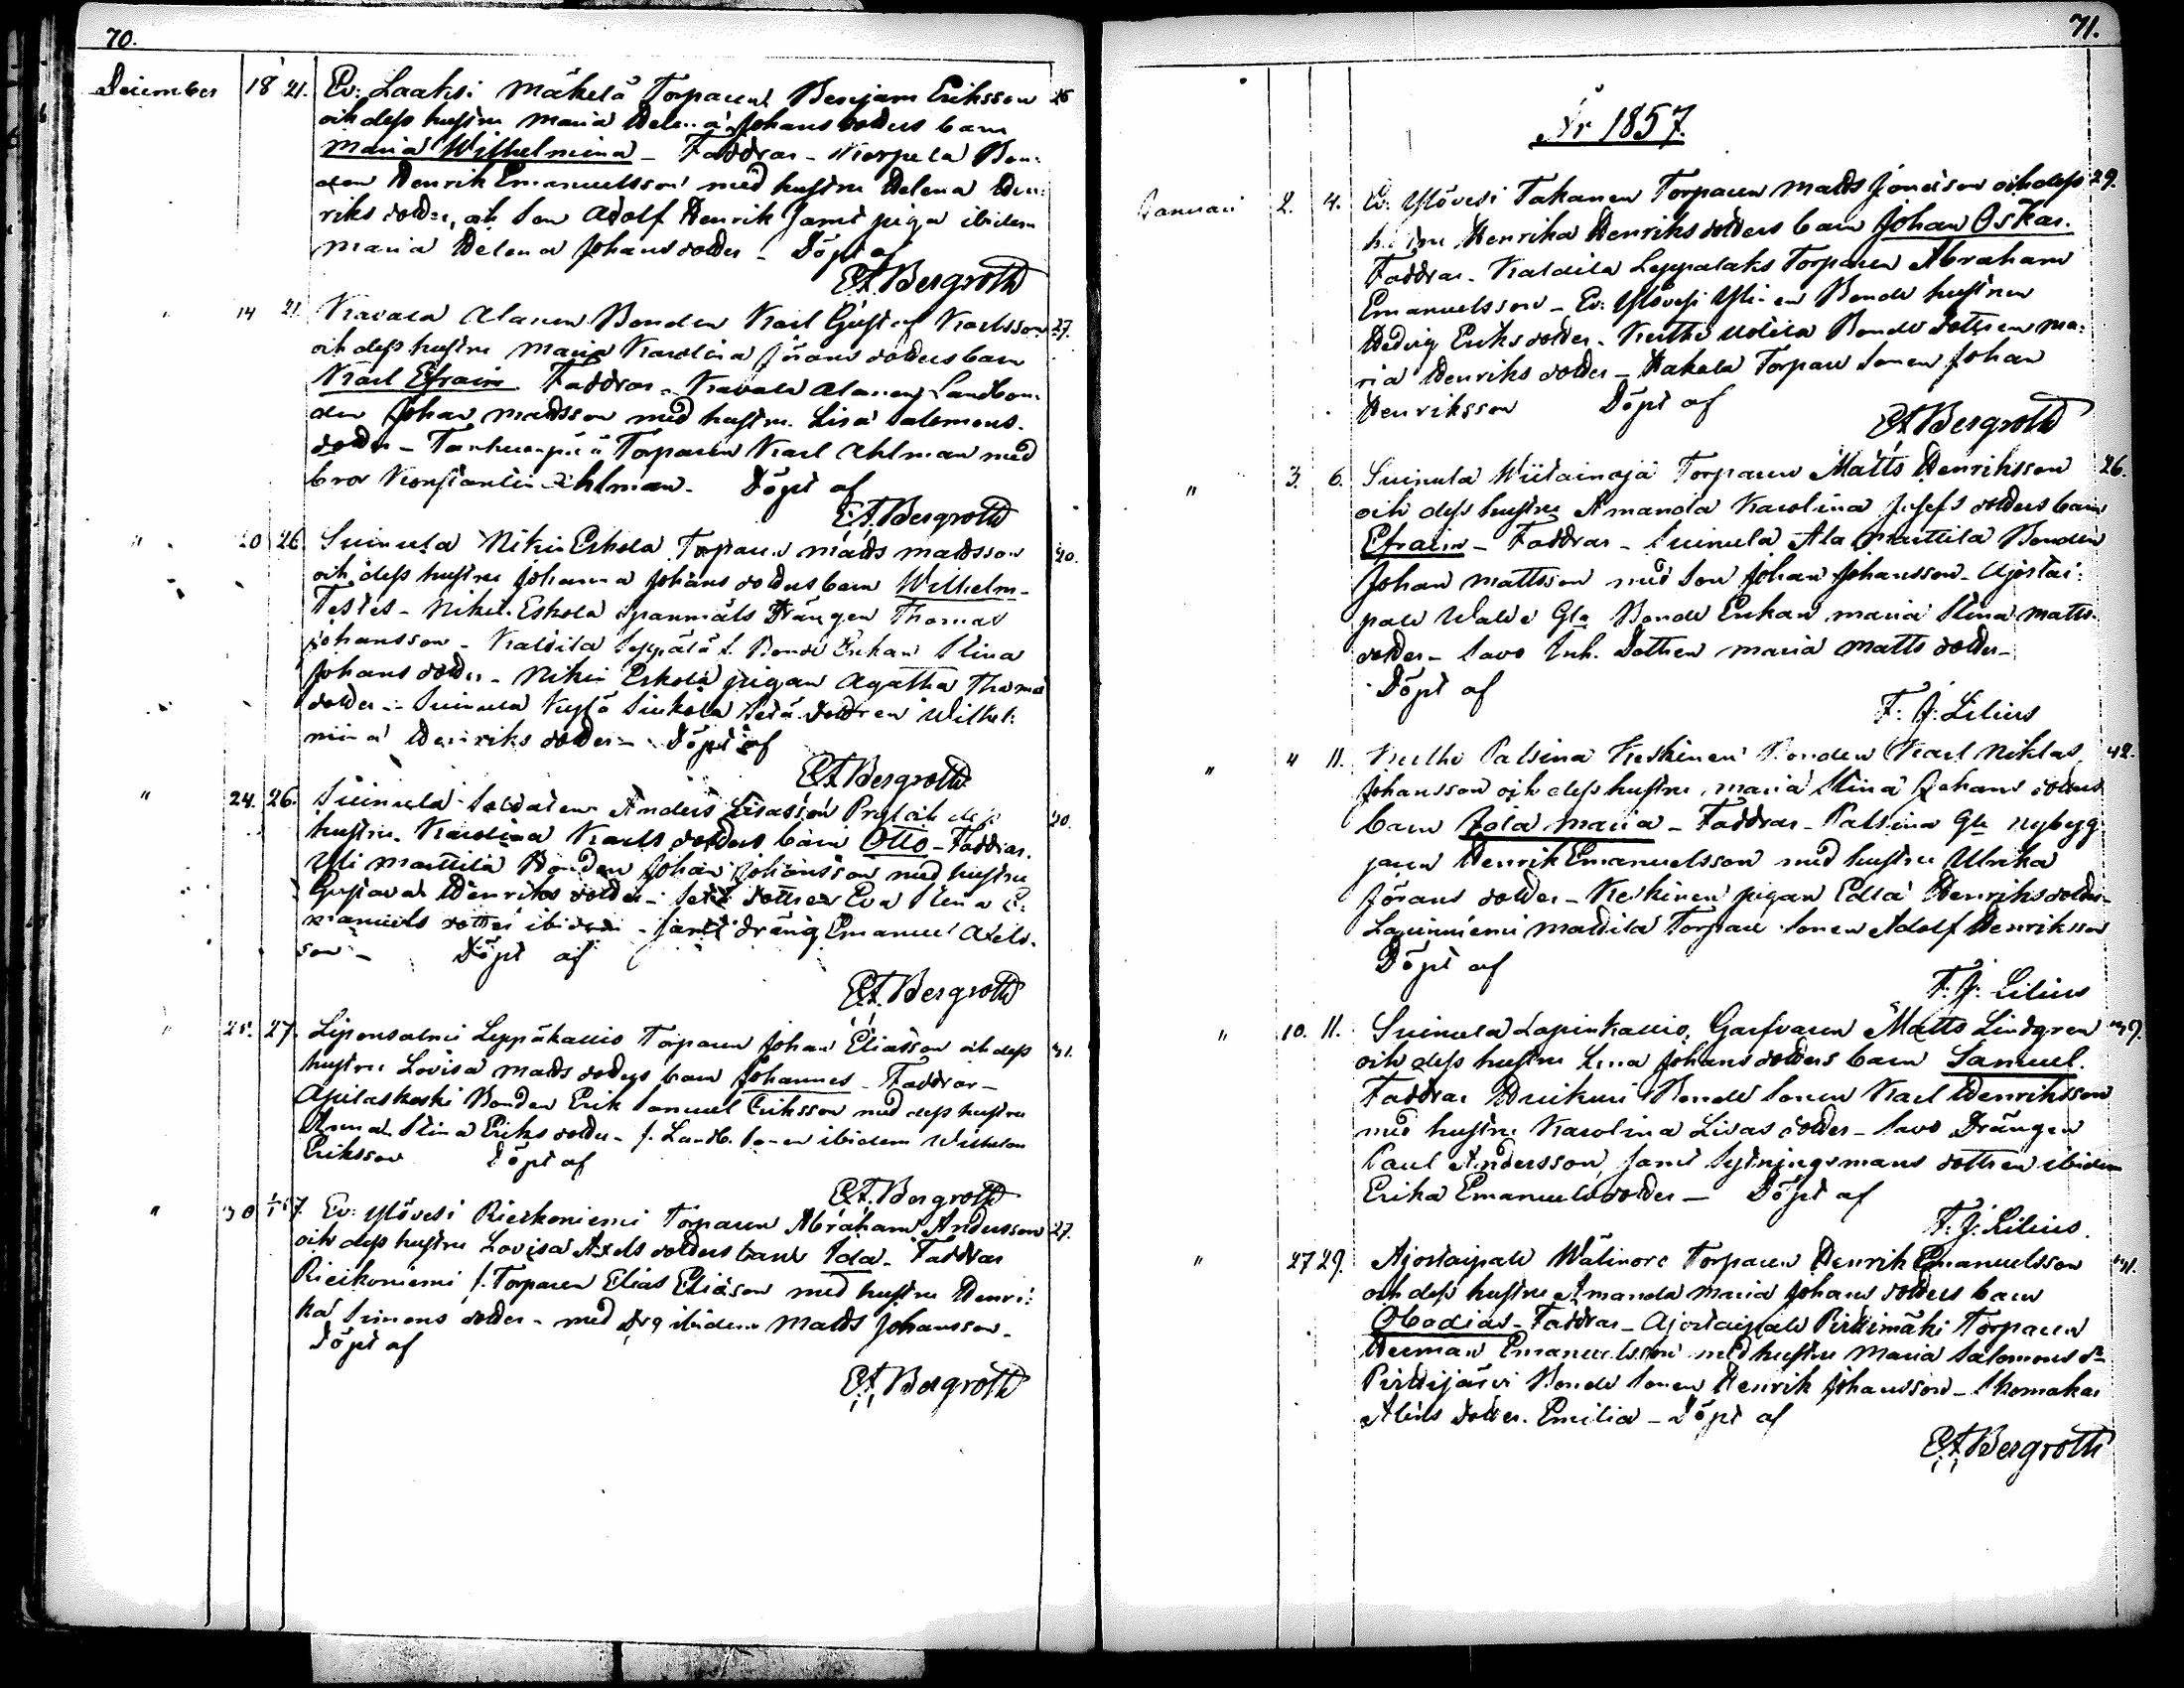 70.
December 18 21. Ev: Laaksi Mäkelä Torparen Benjam Eriksson 25
och dess hustru Maria Helena Johans dotters barn
Maria Wilhelmina - Faddrar - Korpela Bon-
den Henrik Emanuelsson med hustru Helena Hen-
riks dotter, och Son Adolf Henrik samt piga ibidem
Maria Helena Johans dotter - Döpt af
E.A. Bergroth
" 14 21 Kavala Alanen Bonden Karl Gustaf Karlsson 27.
och dess hustru Maria Karolina Jörans dotters barn
Karl Efraim. Faddrar - Kavala Alanen Landbon-
den Johan Mattsson med hustru Lisa Salomons
dotter - Torparen Karl Ahlman med
bror Konstantin Ahlman. Döpt af
E.A. Bergroth
" 20 26. Suinula Nikin Eskola Torparen Matts Mattsson 40.
och dess hustru Johanna Johans dotters barn Wilhelm -
Testes - Nikin Eskola Spanmåls Drängen Thomas
Johansson - Kaldila Seppälä f. Bonde Enkan Stina
Johans dotter - Nikin Eskola pigan Agatha Thomas
dotter - Suinula Kylä dottren Wilhel-
mina Henriks dotter - Döpt af
E.A. Bergroth
" 24. 26. Suinula Soldaten Anders och dess 20.
hustru Karolina Karls dotters barn Otto - Faddrar.
Yli Marttila Bonden Johan Johansson med hustru
Gustava Henriks dotter - dottren Eva Stina E-
manuels dotter ibidem - samt dräng Emanuel Axels-
son - Döpt af
E.A. Bergroth
" 25. 27. Leppäkallio Torparen Johan Eliasson och dess 31.
hustru Lovisa Matts dotters barn Johannes - Faddrar -
Bonden Erik Samuel Eriksson med dess hustru
Anna Stina Eriks dotter - f. Landb. Sonen ibidem Wilhelm
Eriksson Döpt af
E.A. Bergroth
" 30 1/1 57 Ev: Ylövesi Rieskoniemi Torparen Abraham Andersson 27.
och dess hustru Lovisa Axels dotters barn Ida - Faddrar
Rieskoniemi f. Torparen Elias Eliasson med hustru Henri-
ka Simons dotter - med Drg ibidem Matts Johansson -
Döpt af
E.A. Bergroth
71.
År 1857.
Januari 2. 4. Ev: Ylövesi Takanen Torparen Matts och dess 29.
hustru Henrika Henriks dotters barn Johan Oskar.
Faddrar - Kaldila Leppälaks Torparen Abraham
Emanuelsson - Ev: Ylövesi Ylinen Bonde hustrun
Hedvig Eriks dotter - Bonde dottren Ma-
ria Henriks dotter - Hakala Torpare Sonen Johan
Henriksson Döpt af
E.A. Bergroth
" 3. 6. Suinula Wiitainoja Torparen Matts Henriksson 26.
och dess hustru Amanda Karolina Josefs dotters barn
Efraim - Faddrar - Suinula Ala Marttila Bonden
Johan Mattsson med Son Johan Johansson - Ajostai-
pale Bonde Enkan Maria Stina Matts-
dotter - Savo Inh. Dottren Maria Matts dotter -
Döpt af
F: J: Lilius
" 4 11. Palsina Keskinen Bonden Karl Niklas 42.
Johansson och dess hustru, Maria Stina Johans dotters
barn Maria - Faddrar - Palsina Nybyg-
garen Henrik Emanuelsson med hustru Ulrika
Jörans dotter - Keskinen pigan Edla Henriks dotter -
Lapinniemi Mattila Torpare Sonen Adolf Henriksson
Döpt af
F: J: Lilius
" 10. 11. Suinula Lapinkallio, Garfvaren Matts Lindgren 39.
och dess hustru Johans dotters barn Samuel.
Faddrar Bonde Sonen Karl Henriksson
med hustru Karolina dotter - Savo Drängen
Paul Andersson, samt Sytningsmans dottren ibidem
Erika Emanuels dotter - Döpt af
F: J: Lilius.
" 27 29. Ajostaipale Torparen Henrik Emanuelsson 41.
och dess hustru Amanda Maria Johans dotters barn
Obadias - Faddrar - Ajostaipale Pirttimäki Torparen
Herman Emanuelsson med hustru Maria Salomons dr
Pirttijärvi Bonde Sonen Henrik Johansson - Skomakar
dotter Emilia - Döpt af
E.A. Bergroth